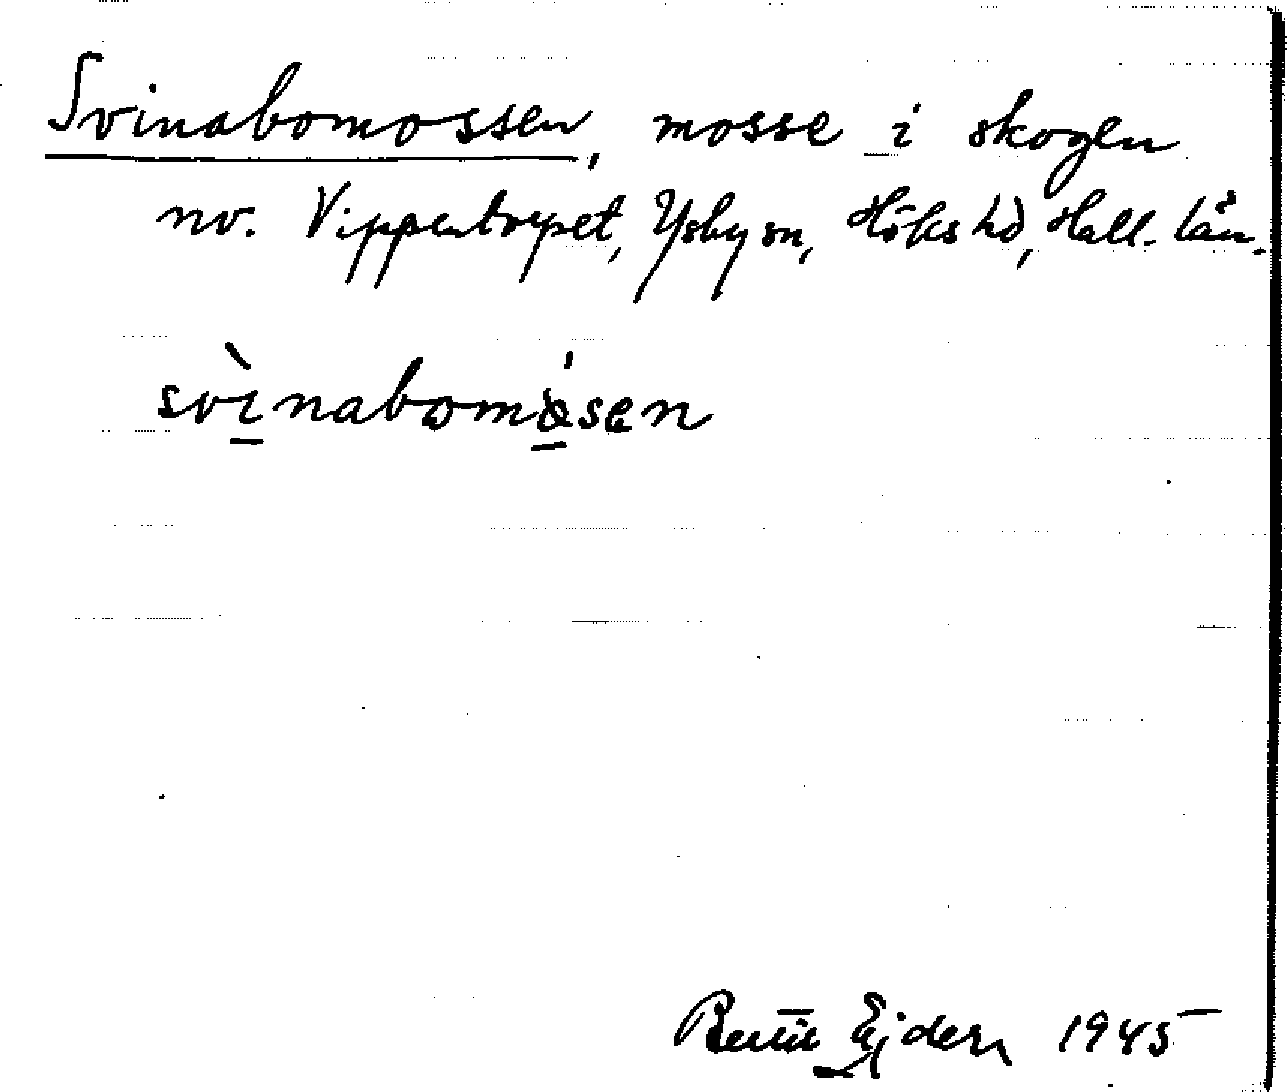 Svinabomossen, mosse i skogen
nv. Vippentorpet, Ysby sn, Höks hd, Hall. län.
svìnabomåsen
Bertil Ejder, 1945